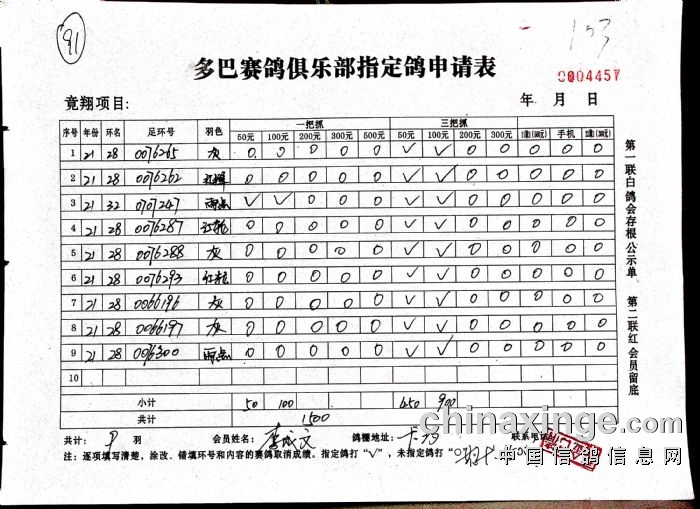 91
153
多巴赛鸽俱乐部指定鸽申请表
0004457
竟翔项目: 年 月 日
序号 年份 环名 足环号 羽色 一把抓 三把抓
50元 100元 200元 300元 500元 50元 100元 200元 300元 手机
1 21 28 0076265 灰 0 0 0 0 0 √ √ 0 0 0 0 0
2 21 28 0076262 0 0 0 0 0 √ √ 0 0 0 0 0
3 21 32 0707247 雨点 √ √ 0 0 0 √ √ 0 0 0 0 0
4 21 28 0076287 红轮 0 0 0 0 0 √ √ 0 0 0 0 0
5 21 28 0076288 灰 0 0 0 0 0 √ √ 0 0 0 0 0
6 21 28 0076293 红轮 0 0 0 0 0 √ √ 0 0 0 0 0
7 21 28 0066196 灰 0 0 0 0 0 √ √ 0 0 0 0 0
8 21 28 0066197 灰 0 0 0 0 0 √ √ 0 0 0 0 0
9 21 28 0076300 雨点 0 0 0 0 0 √ √ 0 0 0 0 0
10
小计 50 100 450 900
共计 1500
共计: 9 羽 会员姓名: 李成文 鸽棚地址: 联系电话
注: 逐项填写清楚、涂改、错填环号和内容的赛鸽取消成绩。指定鸽打“√”, 未指定鸽打“○
第一联白鸽会存根公示单 第二联红会员留底
chinaxinge.com
中国信鸽信息网